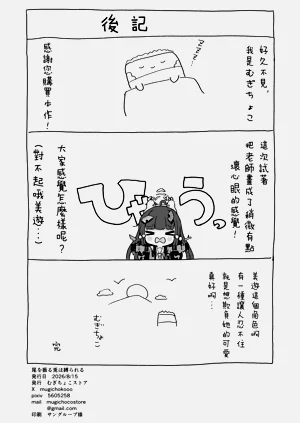 後記
好久不見,
我是むぎちょこ
ZZZZ...
感謝您購買本作!
這次試著
把老師畫成了稍微有點
壞心眼的感覺!
びゃうっ
大家感覺怎麼樣呢?
(對不起哦美遊...)
美遊這個角色啊
有一種讓人忍不住
就是想欺負她的可愛
真好啊...
むぎちょこ
完
尾を振る兎は縛られる
発行日 2026/8/15
発行 むぎちょこストア
X mugichokooo
poov 5605258
mail mugichocostore
@gmail.com
印刷 サングループ様